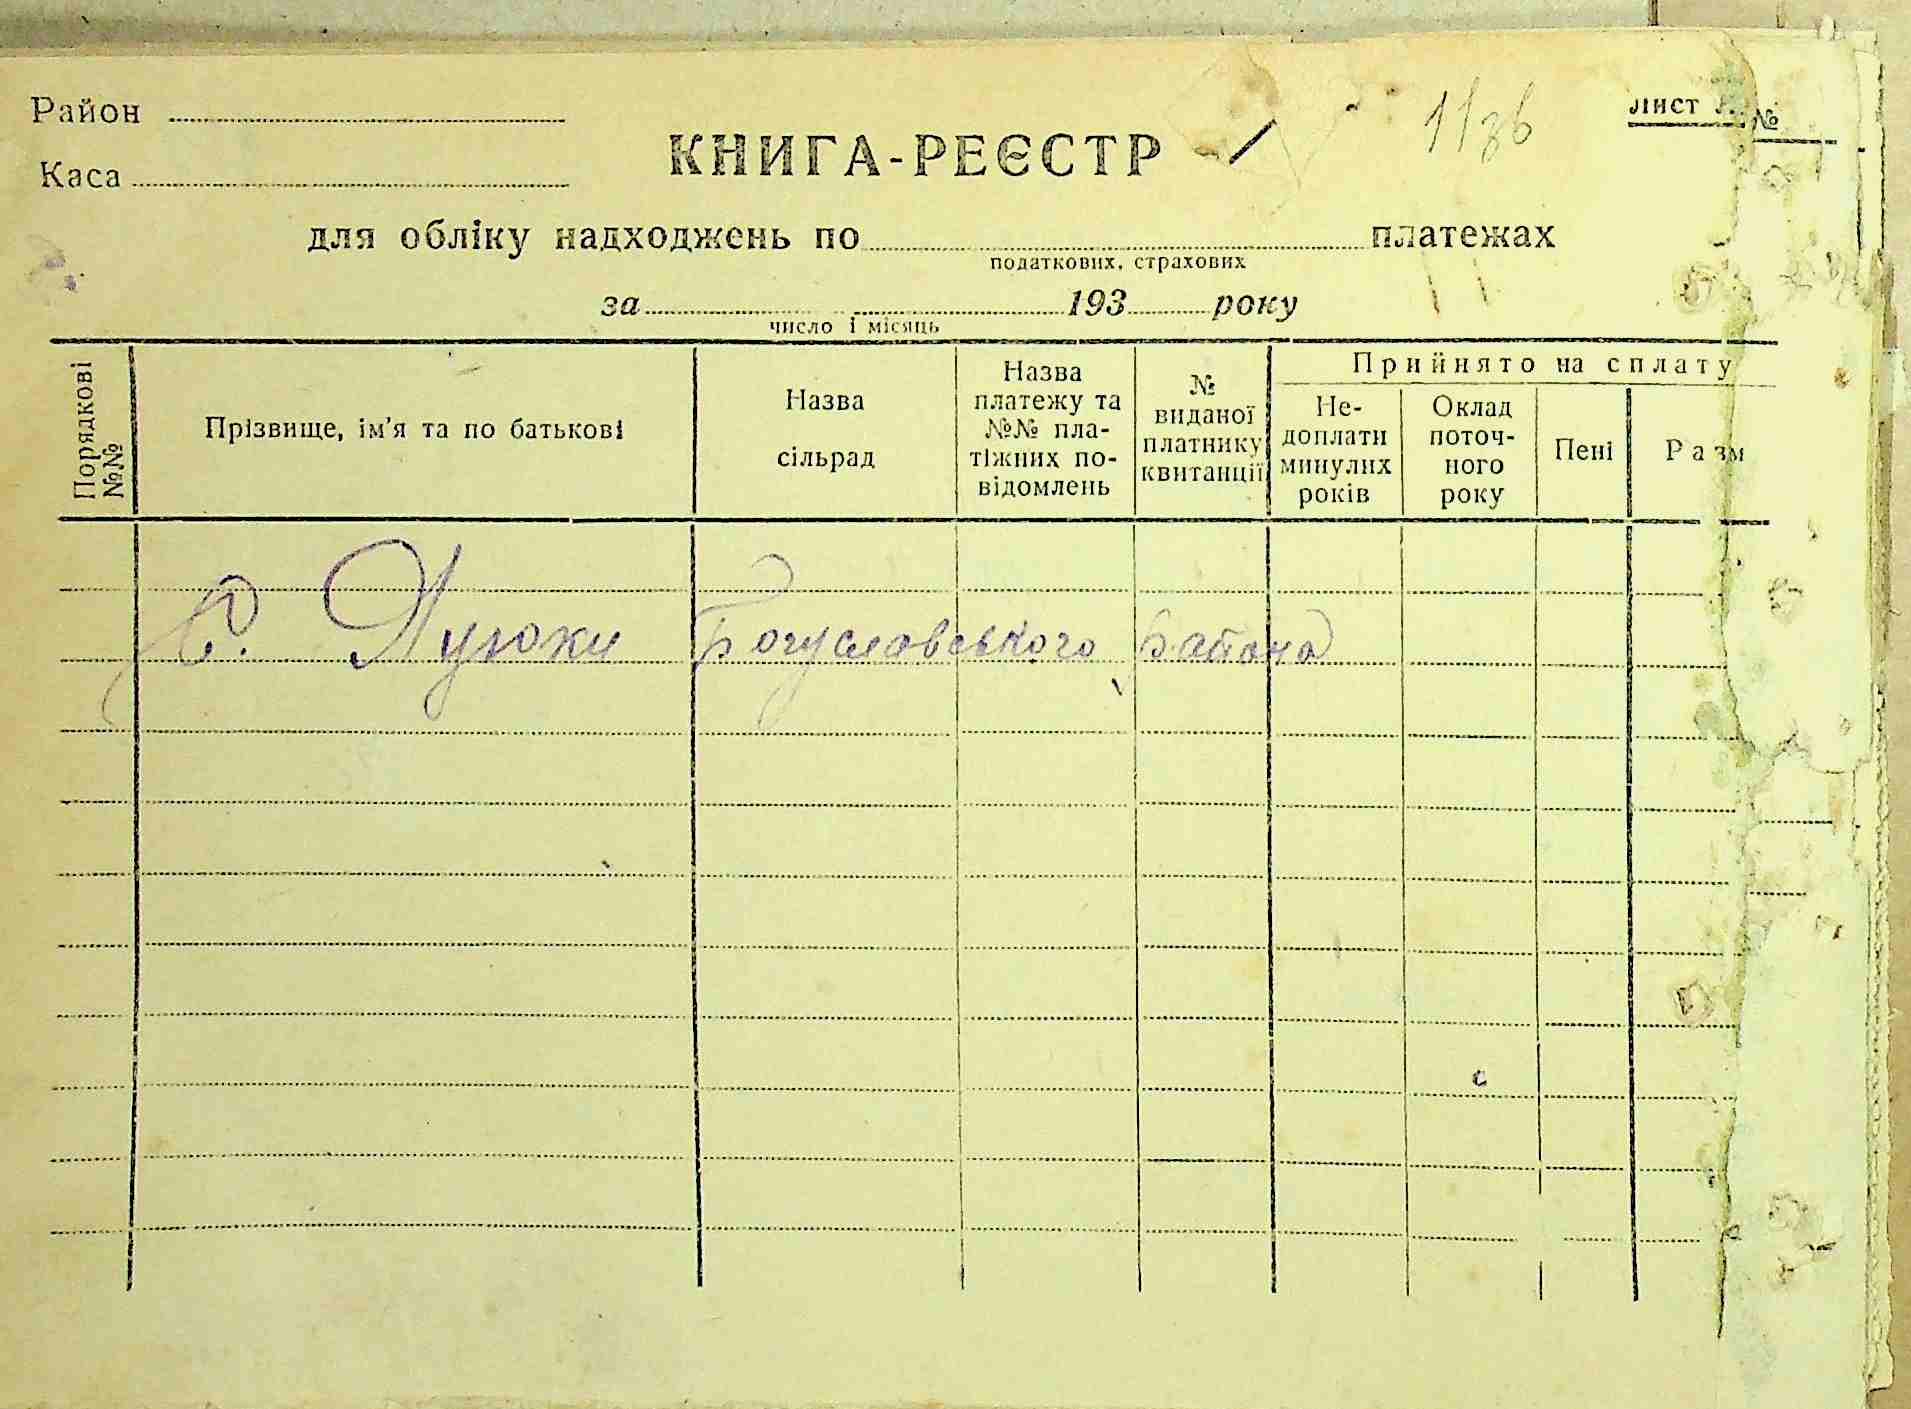 Район
Каса
КНИГА-РЕЄСТР
лист №
для обліку надходжень по платежах
податкових, страхових
за 193 року
число і місяць
Порядкові №№
Прізвище, ім'я та по батькові
Назва сільрад
Назва платежу та №№ платіжних повідомлень
№ виданої платнику квитанції
Прийнято на сплату
Недоплати минулих років
Оклад поточного року
Пені
Разм
С. Богуславського района